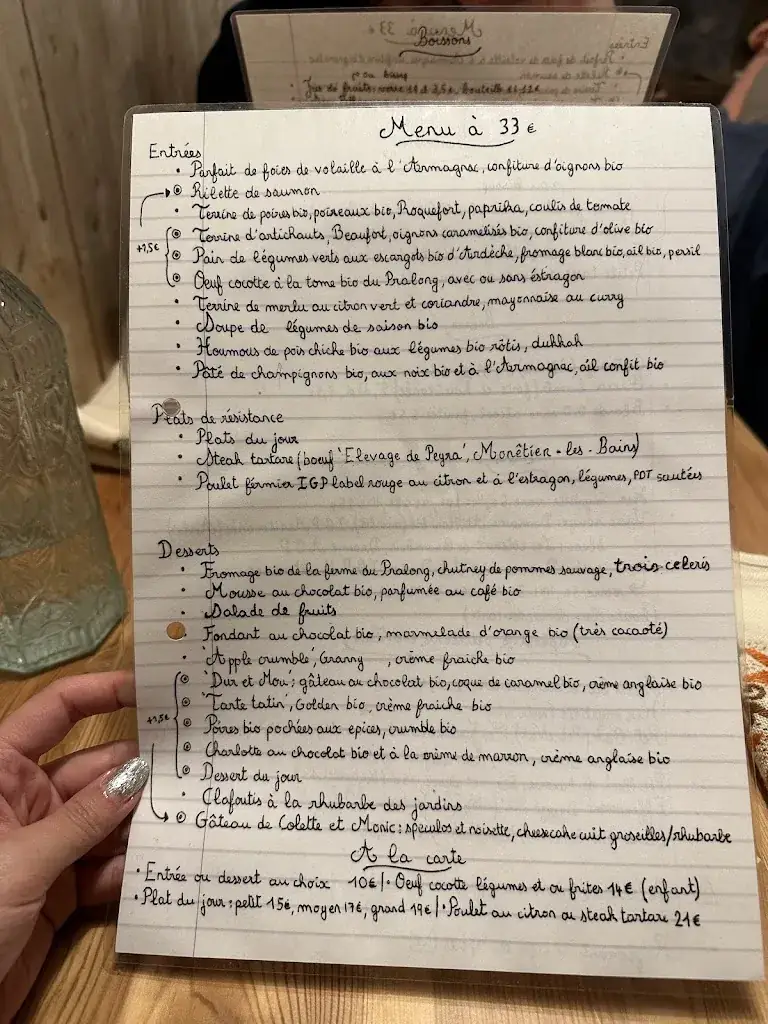 Boissons
Menu à 33 €
Entrées
• Parfait de foies de volaille à l'Armagnac, confiture d'oignons bio
Rilette de saumon
• Terrine de poires bio, poireaux bio, Roquefort, paprika, coulis de tomate
+1,5€
Terrine d'artichauts, Beaufort, oignons caramelisés bio, confiture d'olive bio
Pain de légumes verts aux escargots bio d'Ardèche, fromage blanc bio, ail bio, persil
Oeuf cocotte à la tome bio du Pralong, avec ou sans éstragon
• Terrine de merlu au citron vert et coriandre, mayonnaise au curry
• Soupe de légumes de saison bio
• Houmous de pois chiche bio aux légumes bio rôtis, dukkah
• Pâté de champignons bio, aux noix bio et à l'Armagnac, ail confit bio
Plats de résistance
• Plats du jour
• Steak tartare (boeuf 'Elevage de Peyra', Monêtier-les-Bains)
• Poulet férmier IGP label rouge au citron et à l'estragon, légumes, PDT sautées
Desserts
• Fromage bio de la ferme du Pralong, chutney de pommes sauvage, trois celeris
• Mousse au chocolat bio, parfumée au café bio
• Salade de fruits
Fondant au chocolat bio, marmelade d'orange bio (très cacaoté)
• 'Apple crumble', Granny , crème fraiche bio
'Dur et Mou': gâteau au chocolat bio, coque de caramel bio, crème anglaise bio
'Tarte tatin', Golden bio, crème fraiche bio
+1,5€
Poires bio pochées aux epices, crumble bio
Charlotte au chocolat bio et à la crème de marron, crème anglaise bio
Dessert du jour
• Clafoutis à la rhubarbe des jardins
Gâteau de Colette et Monic: spéculos et noisette, cheesecake cuit groseilles/rhubarbe
A la carte
• Entrée ou dessert au choix 10€ | • Oeuf cocotte légumes et ou frites 14€ (enfant)
• Plat du jour: petit 15€, moyen 17€, grand 19€ | • Poulet au citron ou steak tartare 21€